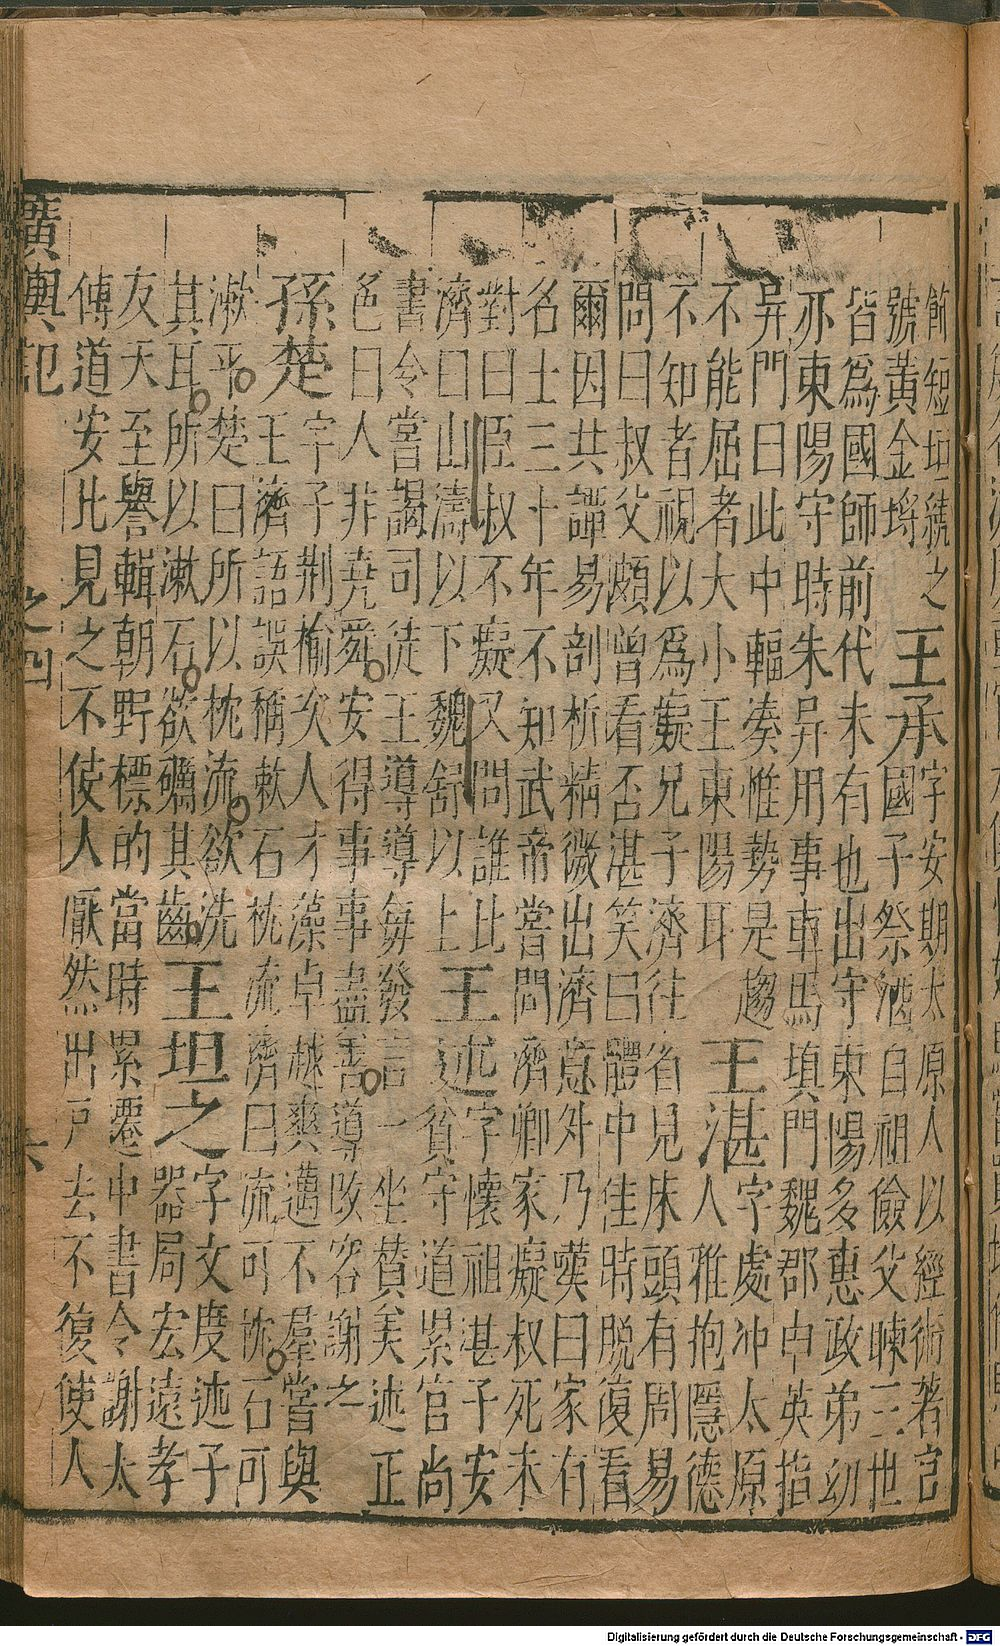 飾短垣繞之
號黃金埒
王承
字安期太原人以經術著官
國子祭酒自祖儉父暕三世
皆爲國師前代未有也出守東陽多惠政弟幼
亦東陽守時朱异用事車馬填門魏郡申英指
异門曰此中輻湊惟勢是趨
不能屈者大小王東陽耳
王湛
字處冲太原
人雅抱隱德
不知者視以爲癡兄子濟往省見床頭有周易
問曰叔父頗曾看否湛笑曰體中佳時脫復看
爾因共譚易剖析精微出濟意外乃嘆曰家有
名士三十年不知武帝嘗問濟卿家癡叔死未
對曰臣叔不癡又問誰比
濟曰山濤以下魏舒以上
王述
字懷祖湛子安
貧守道累官尚
書令嘗謁司徒王導導每發言一坐贊美述正
色曰人非堯舜安得事事盡善導改容謝之
孫楚
字子荆榆次人才藻卓越爽邁不羣嘗與
王濟語誤稱漱石枕流濟曰流可枕石可
漱乎楚曰所以枕流欲洗
其耳所以漱石欲礪其齒
王坦之
字文度述子
器局宏遠孝
友天至譽輯朝野標的當時累遷中書令謝太
傅道安比見之不使人厭然出戶去不復使人
廣輿記 之四 六
Digitalisierung gefördert durch die Deutsche Forschungsgemeinschaft - DFG